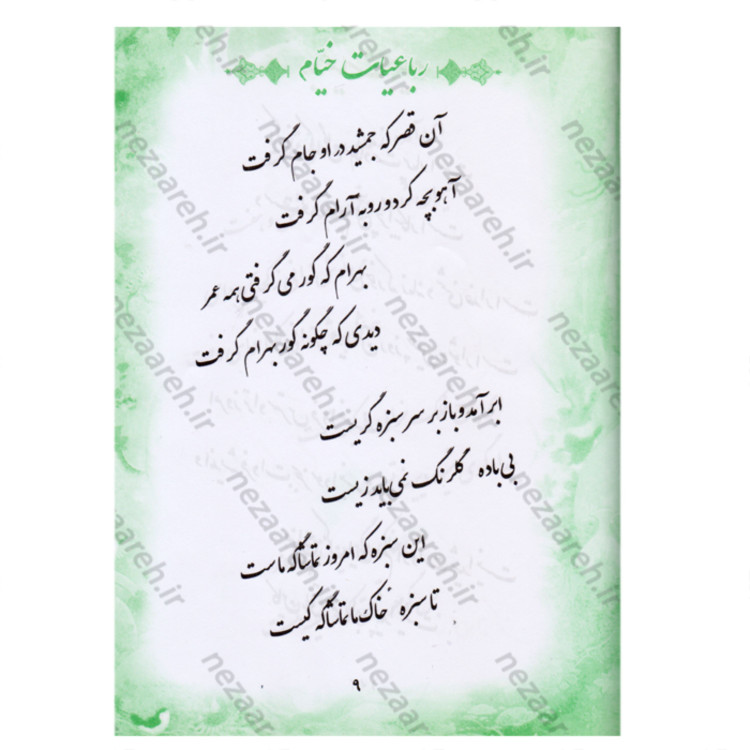 رباعیات خیّام
آن قصر که جمشید در او جام گرفت
آهو بچه کرد و روبه آرام گرفت
بهرام که گور می گرفتی همه عمر
دیدی که چگونه گور بهرام گرفت
ابر آمد و باز بر سر سبزه گریست
بی باده گلرنگ نمی باید زیست
این سبزه که امروز تماشاگه ماست
تا سبزه خاک ما تماشاگه کیست
۹
nezaareh.ir